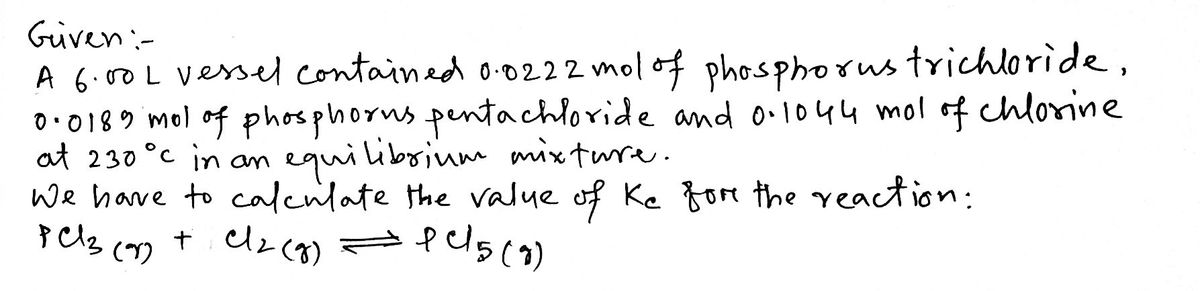 Given:-
A 6.00 L vessel contained 0.0222 mol of phosphorus trichloride,
0.0189 mol of phosphorus pentachloride and 0.1044 mol of chlorine
at 230°C in an equilibrium mixture.
We have to calculate the value of Kc for the reaction:
PCl3 (g) + Cl2 (g) ⇌ PCl5 (g)